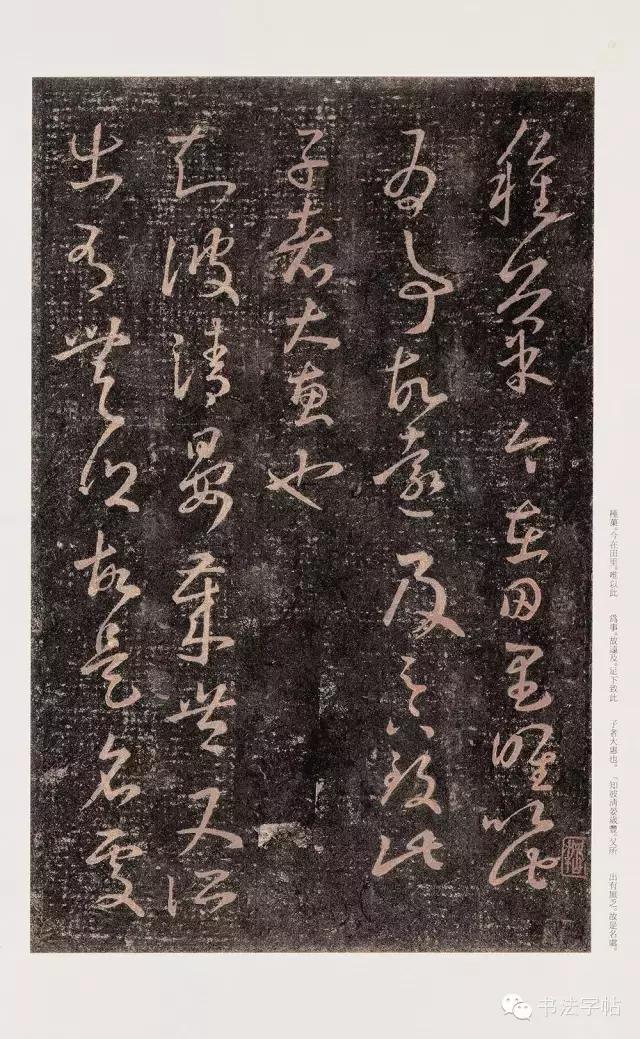 種菓今在田里唯以此
爲事故遠及足下致此
子者大惠也
知彼清晏歲豐又所
出有無乏故是名處
種菓。今在田里。唯以此 爲事。故遠及。足下致此 子者大惠也。 「知彼清晏歲豐。又所 出有無乏。故是名處。
书法字帖